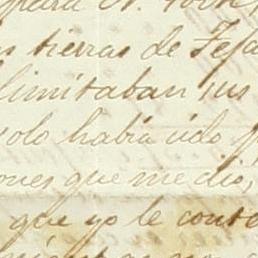 para N. York
tierras de Teja
limitaban sus
solo había ido
ones que me dio,
que yo le conte